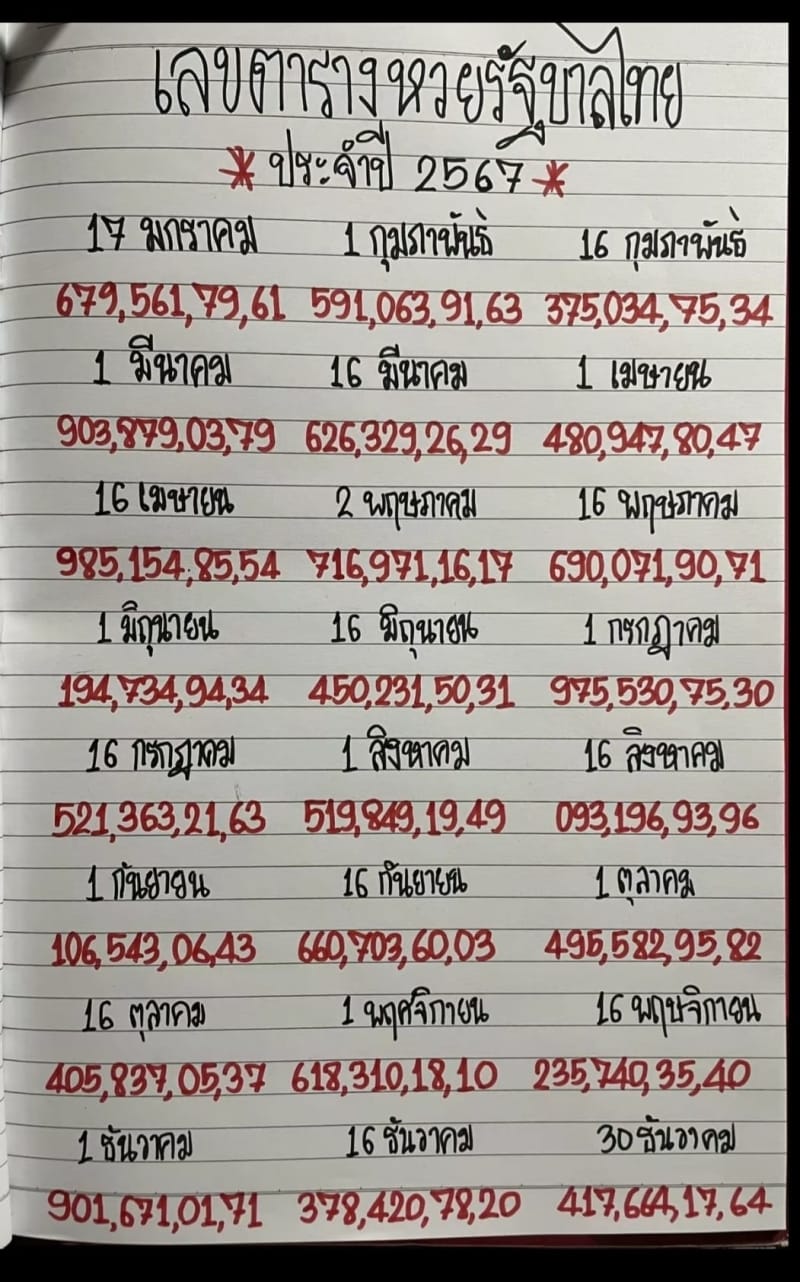 เลขตารางหวยรัฐบาลไทย
* ประจำปี 2567 *
17 มกราคม 1 กุมภาพันธ์ 16 กุมภาพันธ์
679,561,79,61 591,063,91,63 375,034,75,34
1 มีนาคม 16 มีนาคม 1 เมษายน
903,879,03,79 626,329,26,29 480,947,80,47
16 เมษายน 2 พฤษภาคม 16 พฤษภาคม
985,154,85,54 716,971,16,17 690,071,90,71
1 มิถุนายน 16 มิถุนายน 1 กรกฎาคม
194,734,94,34 450,231,50,31 975,530,75,30
16 กรกฎาคม 1 สิงหาคม 16 สิงหาคม
521,363,21,63 519,849,19,49 093,196,93,96
1 กันยายน 16 กันยายน 1 ตุลาคม
106,543,06,43 660,703,60,03 495,582,95,82
16 ตุลาคม 1 พฤศจิกายน 16 พฤษจิกายน
405,837,05,37 618,310,18,10 235,740,35,40
1 ธันวาคม 16 ธันวาคม 30 ธันวาคม
901,671,01,71 378,420,78,20 417,664,17,64